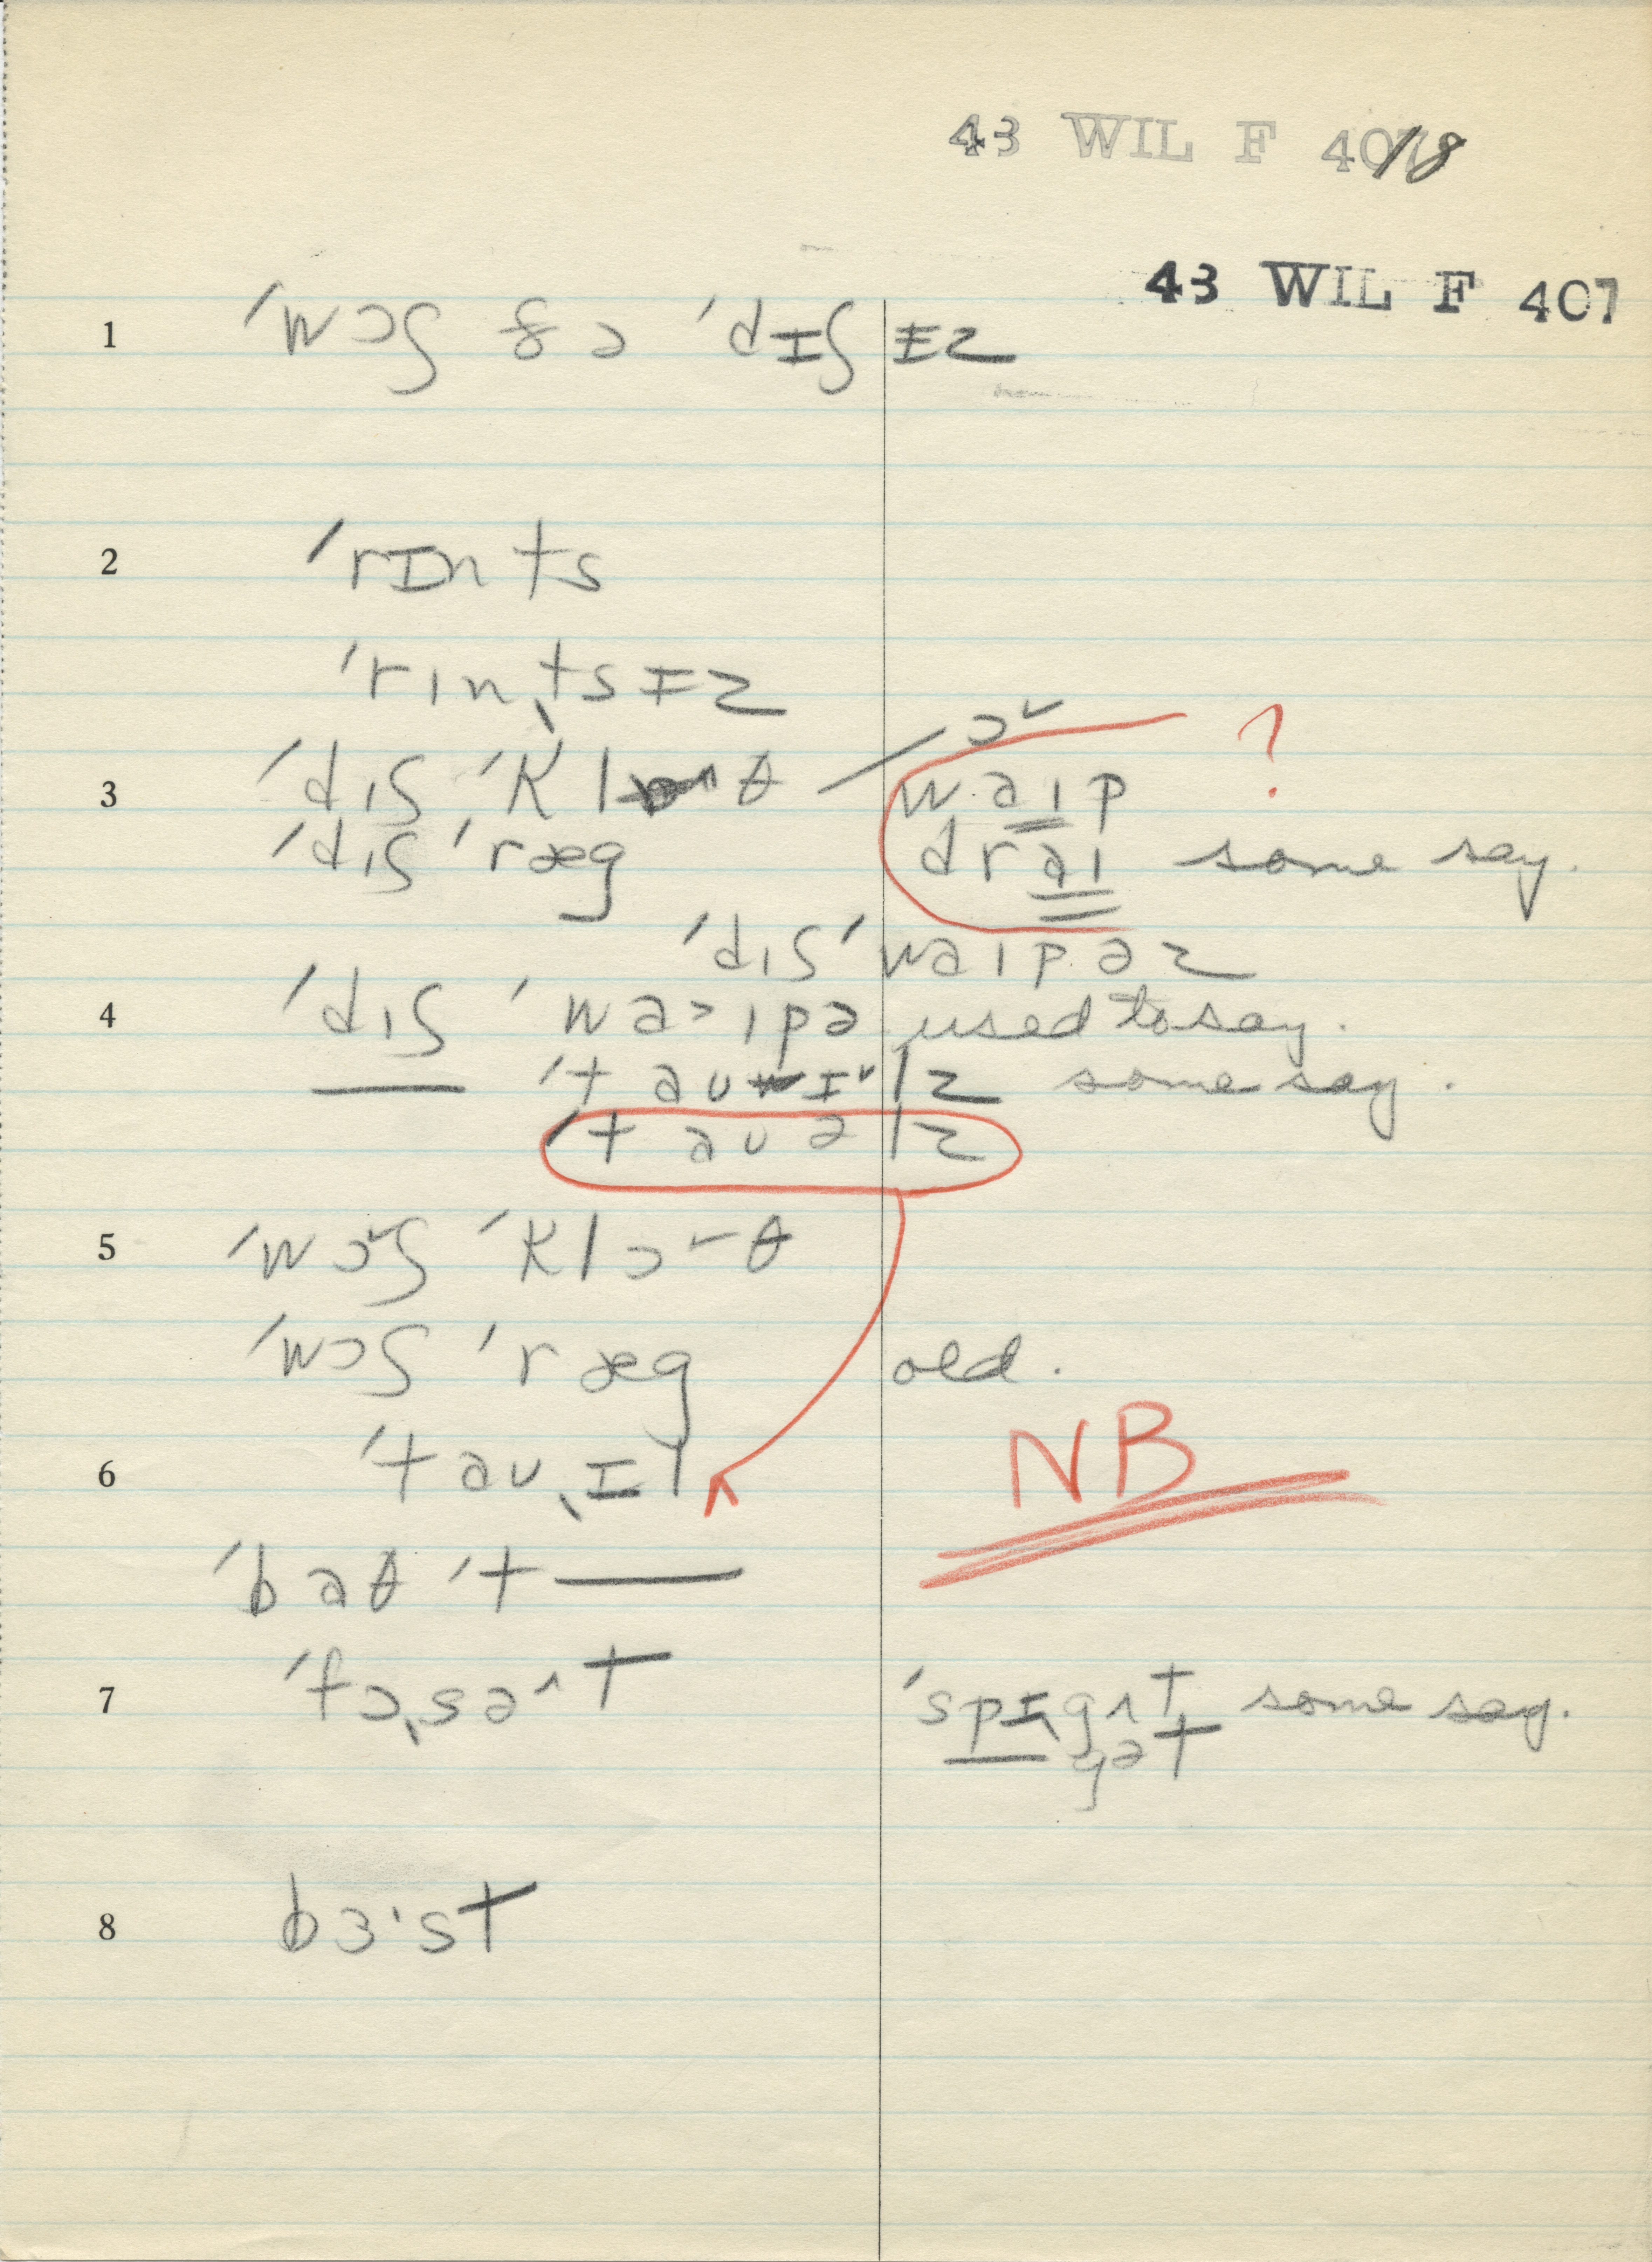 43 WIL F 407/8
43 WIL F 407
1 ˈwɔʃ ðə ˈdɪʃ ɨz
2 ˈrɪnts
ˈrɪnˌtsɨz
3 ˈdɪʃ ˈklɔ˅θ waɪp ?
ˈdɪʃ ˈræg draɪ some say.
ˈdɪʃ ˈwaɪpəz
4 ˈdɪʃ ˈwa>ɪpə used to say.
— ˈtaʊɪ˅lz some say.
ˈtaʊəlz
5 ˈwɔ˅ʃ ˈklɔ˅θ
ˈwɔʃ ˈræg old.
6 ˈtaʊˌɪl NB
ˈbaθ ˈt—
7 ˈfɔˌsə^t ˈspɪgʌt some say.
gət
8 bɜ·st